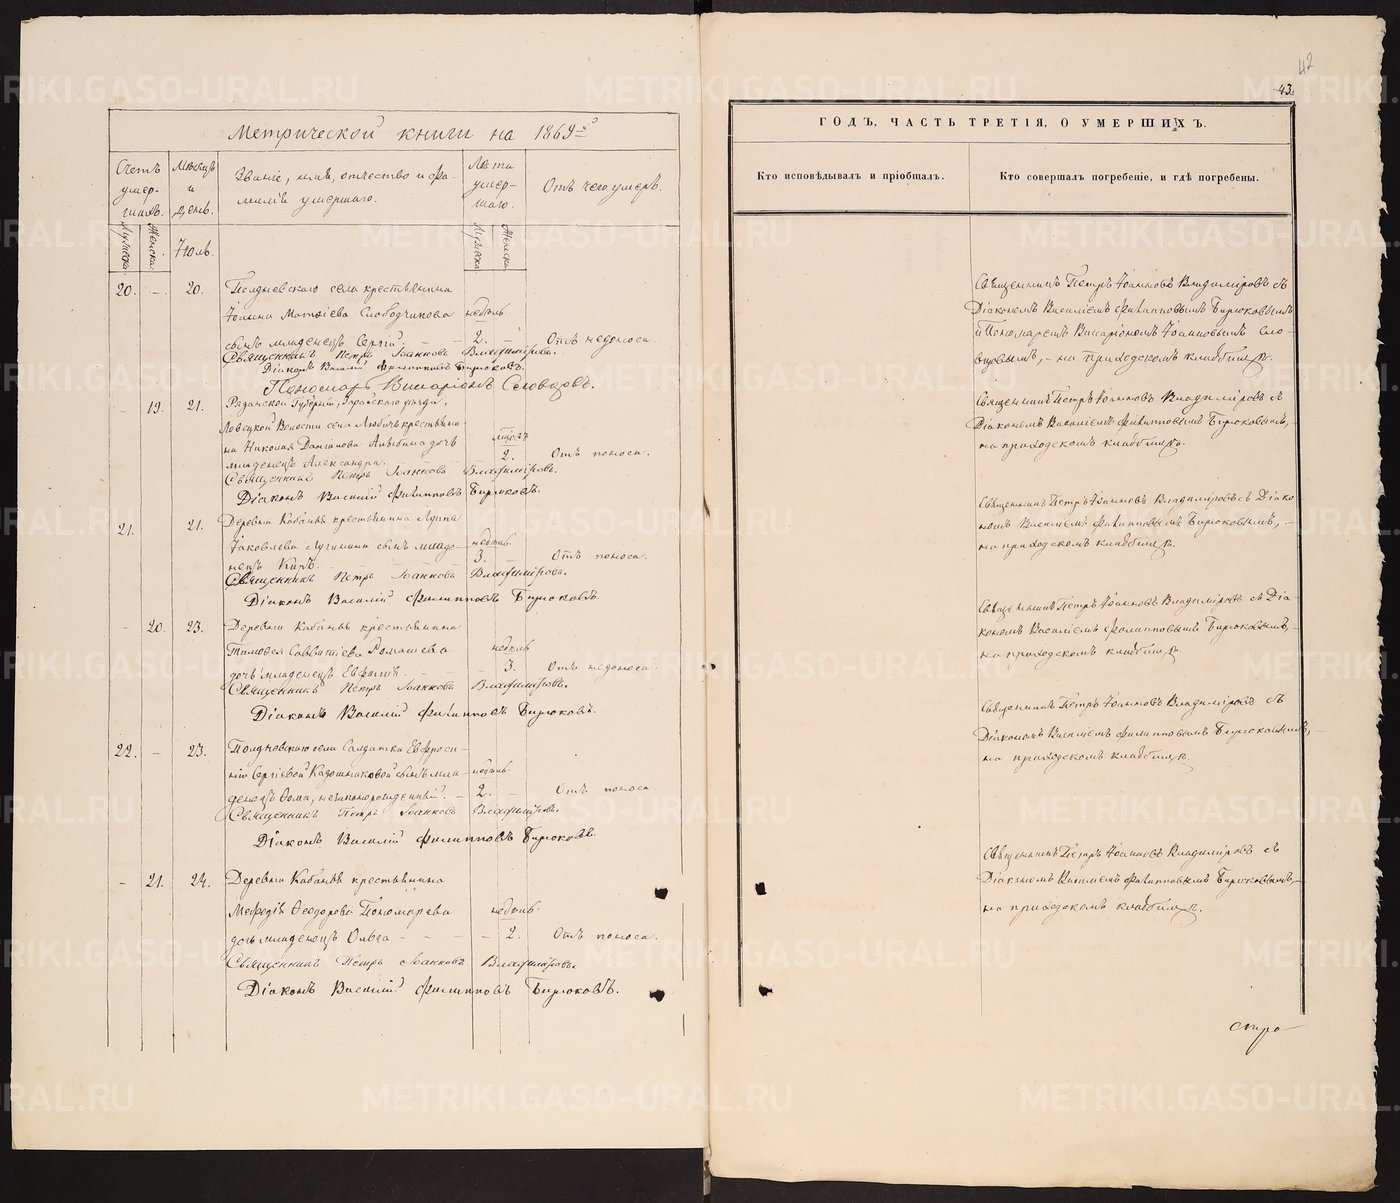 42
43.
Метрической книги на 1869й
Счетъ умер-шихъ.
Мужска.
Женска.
Мѣсяцъ и день.
Званіе, имя, отчество и фа-
миліѣ умершаго.
Лѣта умер-шаго.
Мужска
Женска
Отъ чего умеръ.
Іюль.
20. – 20. Полдневскаго села крестьянина
Іоанна Матѳіева Слободчикова недѣль
сынъ младенецъ Сергій. – 2. – Отъ недоноса.
Священникъ Петръ Іоанновъ Владиміровъ.
Діаконъ Василій Филипповъ Бирюковъ.
Пономарь Виссаріонъ Словцовъ.
– 19. 21. Рязанской Губерніи, Зарайскаго уѣзда,
Ловецкой Волости села Любичъ крестьяни-
на Николая дочь мѣсяц.
младенецъ Александра. 2. Отъ поноса.
Священникъ Петръ Іоанновъ Владиміровъ.
Діаконъ Василій Филипповъ Бирюковъ.
21. 21. Деревни Кабанья крестьянина Луппа
Іаковлева Лучинина сынъ младе- недѣль
нецъ Киръ. 3. Отъ поноса.
Священникъ Петръ Іоанновъ Владиміровъ.
Діаконъ Василій Филипповъ Бирюковъ.
– 20. 23. Деревни Кабанья крестьянина
Тимоѳея Савватіева Ромашева недѣль
дочь младенецъ Евфимія. – 3. Отъ недоноса.
Священникъ Петръ Іоанновъ Владиміровъ.
Діаконъ Василій Филипповъ Бирюковъ.
22. – 23. Полдневскаго села Солдатки Евфроси-
ніи Сергіевой Кадошниковой сынъ мла- недѣль
денецъ Ѳома, незаконорожденный. – 2. – Отъ поноса.
Священникъ Петръ Іоанновъ Владиміровъ.
Діаконъ Василій Филипповъ Бирюковъ.
– 21. 24. Деревни Кабанья крестьянина
Меѳодія Ѳеодорова Пономарева недѣль
дочь младенецъ Ольга – – – – – 2. Отъ поноса.
Священникъ Петръ Іоанновъ Владиміровъ.
Діаконъ Василій Филипповъ Бирюковъ.
ГОДЪ, ЧАСТЬ ТРЕТІЯ, О УМЕРШИХЪ.
Кто исповѣдывалъ и пріобщалъ.
Кто совершалъ погребеніе, и гдѣ погребены.
Священникъ Петръ Іоанновъ Владиміровъ съ
Діакономъ Василіемъ Филипповымъ Бирюковымъ
и Пономаремъ Виссаріономъ Іоанновымъ Сло-
вцовымъ, – на приходскомъ кладбищѣ.
Священникъ Петръ Іоанновъ Владиміровъ съ
Діакономъ Василіемъ Филипповымъ Бирюковымъ,
на приходскомъ кладбищѣ.
Священникъ Петръ Іоанновъ Владиміровъ съ Діако-
номъ Василіемъ Филипповымъ Бирюковымъ, –
на приходскомъ кладбищѣ.
Священникъ Петръ Іоанновъ Владиміровъ съ Діа-
кономъ Василіемъ Филипповымъ Бирюковымъ, –
на приходскомъ кладбищѣ.
Священникъ Петръ Іоанновъ Владиміровъ съ
Діакономъ Василіемъ Филипповымъ Бирюковымъ, –
на приходскомъ кладбищѣ.
Священникъ Петръ Іоанновъ Владиміровъ съ
Діакономъ Василіемъ Филипповымъ Бирюковымъ, –
на приходскомъ кладбищѣ.
METRIKI.GASO-URAL.RU